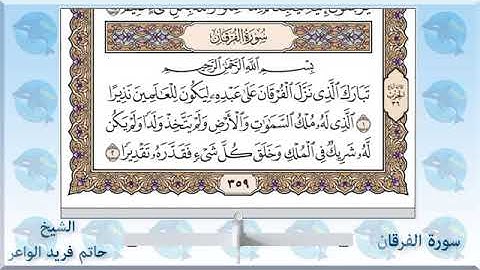 سورة الفرقان
بسم الله الرحمن الرحيم
تَبَارَكَ الَّذِي نَزَّلَ الْفُرْقَانَ عَلَىٰ عَبْدِهِ لِيَكُونَ لِلْعَالَمِينَ نَذِيرًا
١ الَّذِي لَهُ مُلْكُ السَّمَاوَاتِ وَالْأَرْضِ وَلَمْ يَتَّخِذْ وَلَدًا وَلَمْ يَكُن
لَّهُ شَرِيكٌ فِي الْمُلْكِ وَخَلَقَ كُلَّ شَيْءٍ فَقَدَّرَهُ تَقْدِيرًا ٢
٣٥٩
سورة الفرقان
الشيخ
حاتم فريد الواعر